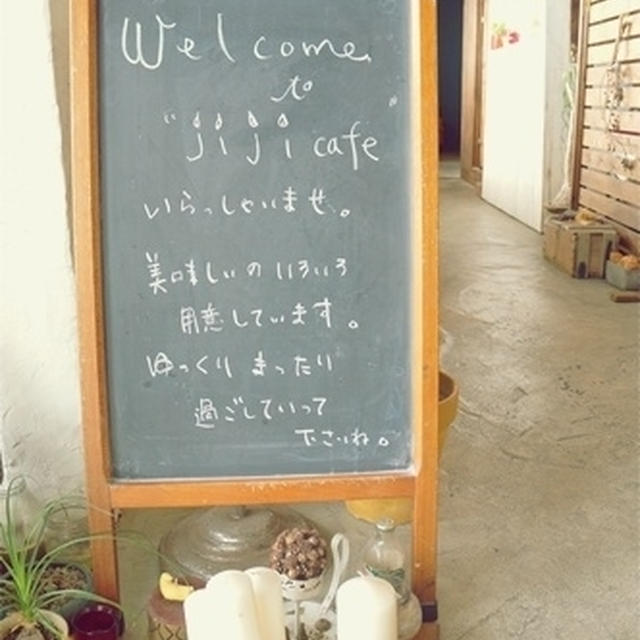 Welcome
to
"jiji cafe"
いらっしゃいませ。
美味しいのいろいろ
用意しています。
ゆっくり まったり
過ごしていって
下さいね。